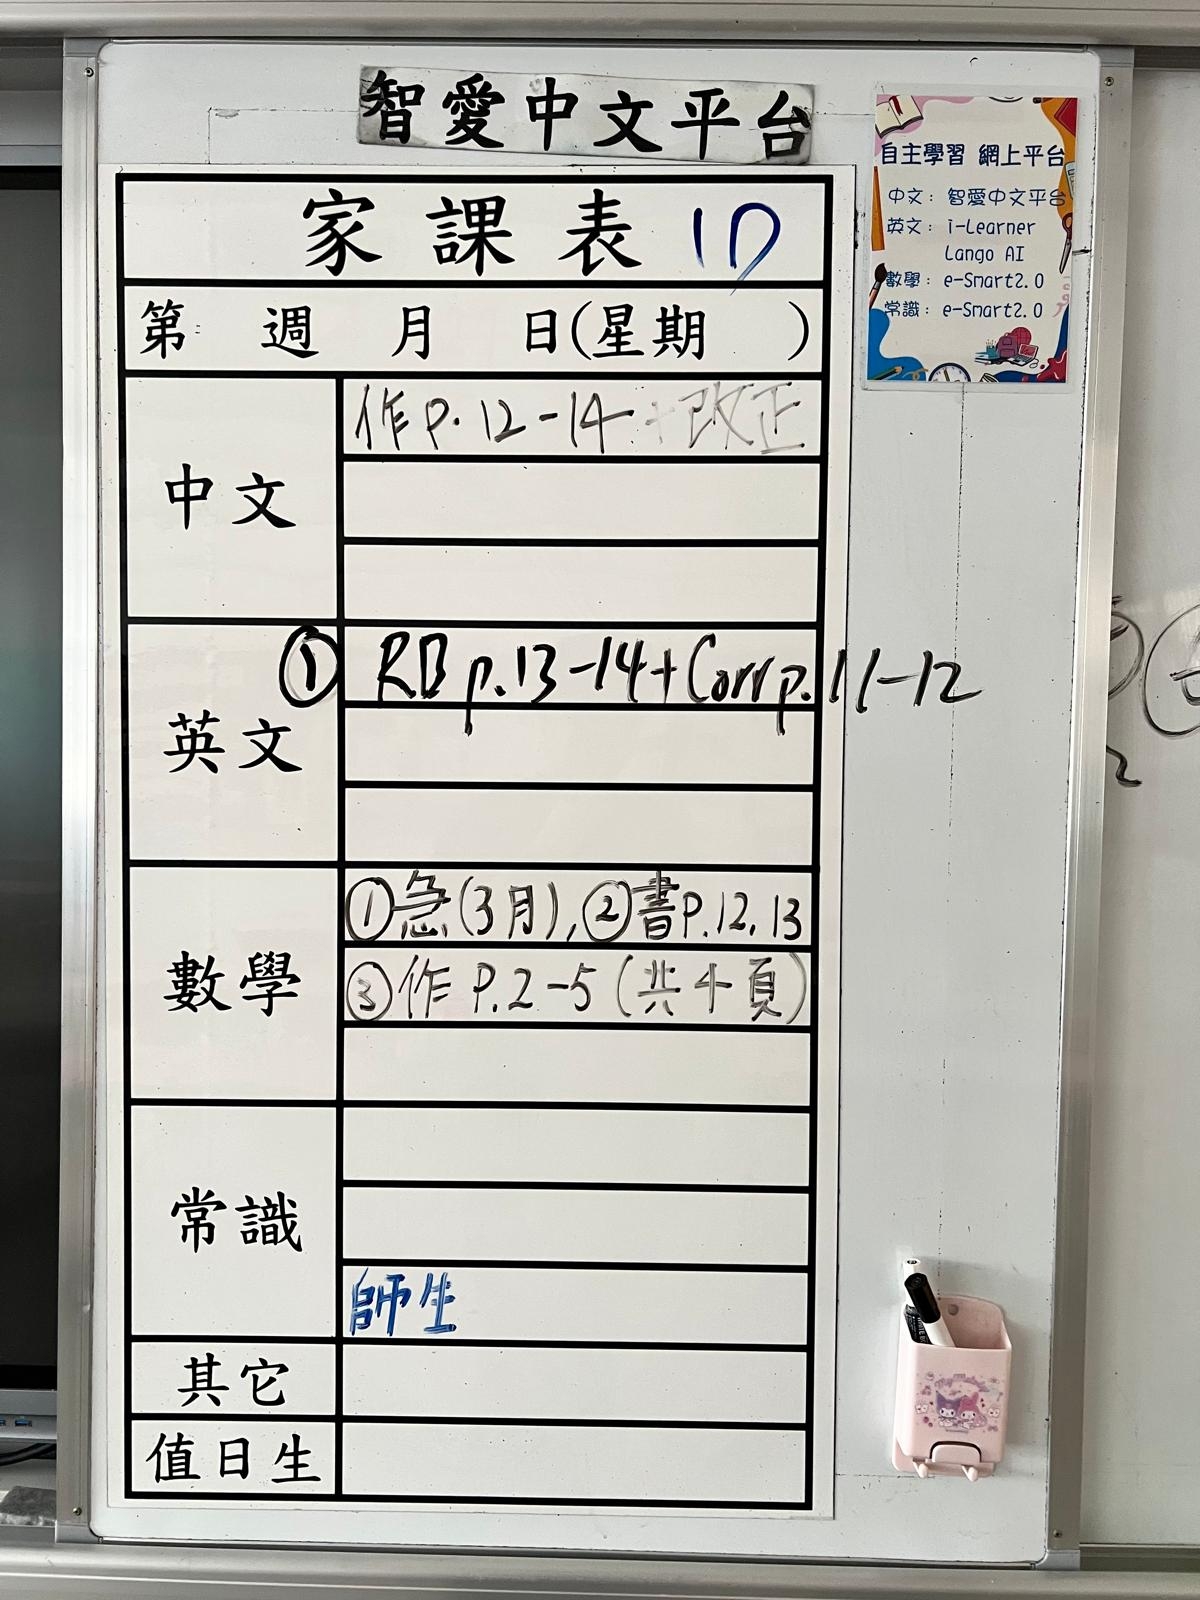 智愛中文平台
自主學習 網上平台
中文: 智愛中文平台
英文: i-Learner
Lango AI
數學: e-Smart2.0
常識: e-Smart2.0
家課表 1D
第 週 月 日(星期 )
中文
作P.12-14+改正
英文
① RB p.13-14+Corr p.11-12
數學
①急(3月),②書P.12,13
③作P.2-5(共4頁)
常識
師生
其它
值日生